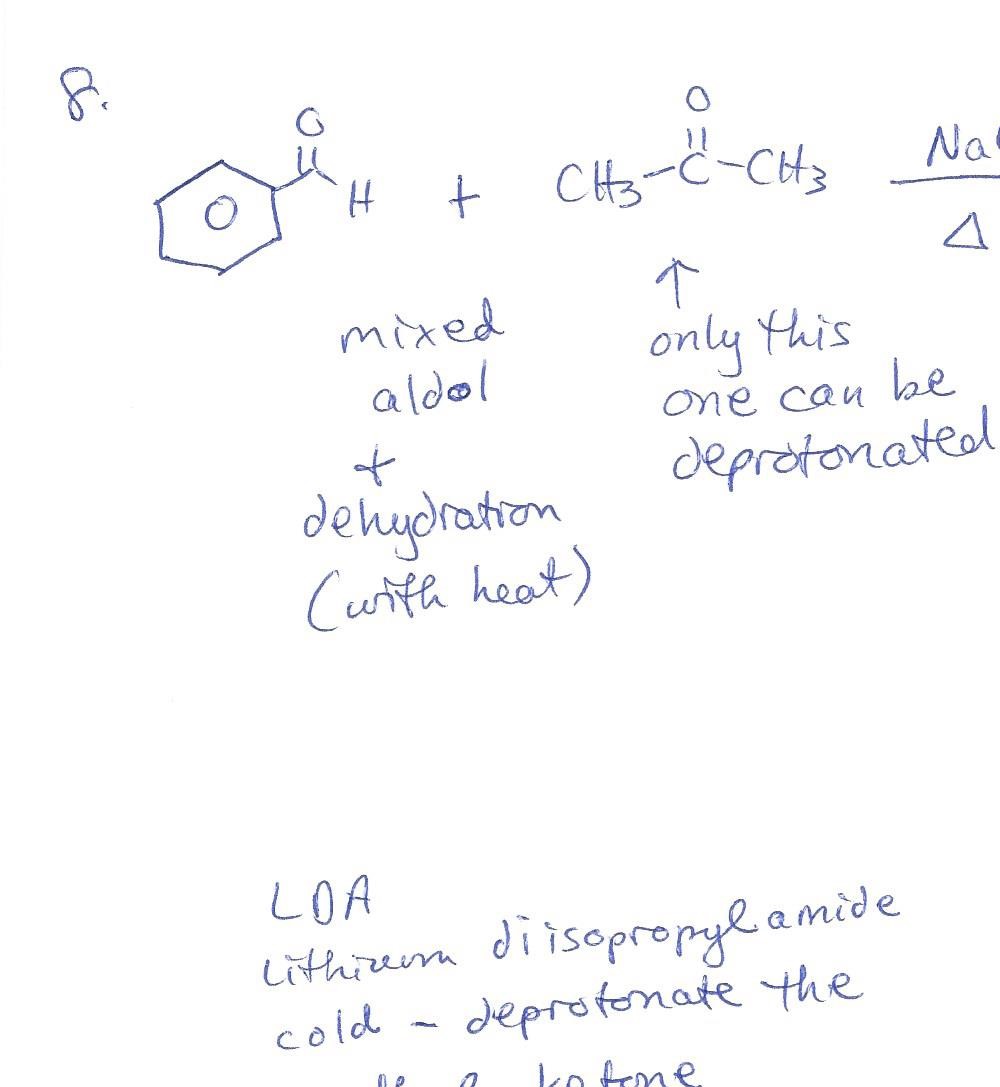 8.
O
H + CH3-C-CH3 Na
O
Δ
↑
mixed only this
aldol one can be
+ deprotonated
dehydration
(with heat)
LDA
Lithium diisopropylamide
cold - deprotonate the
ketone